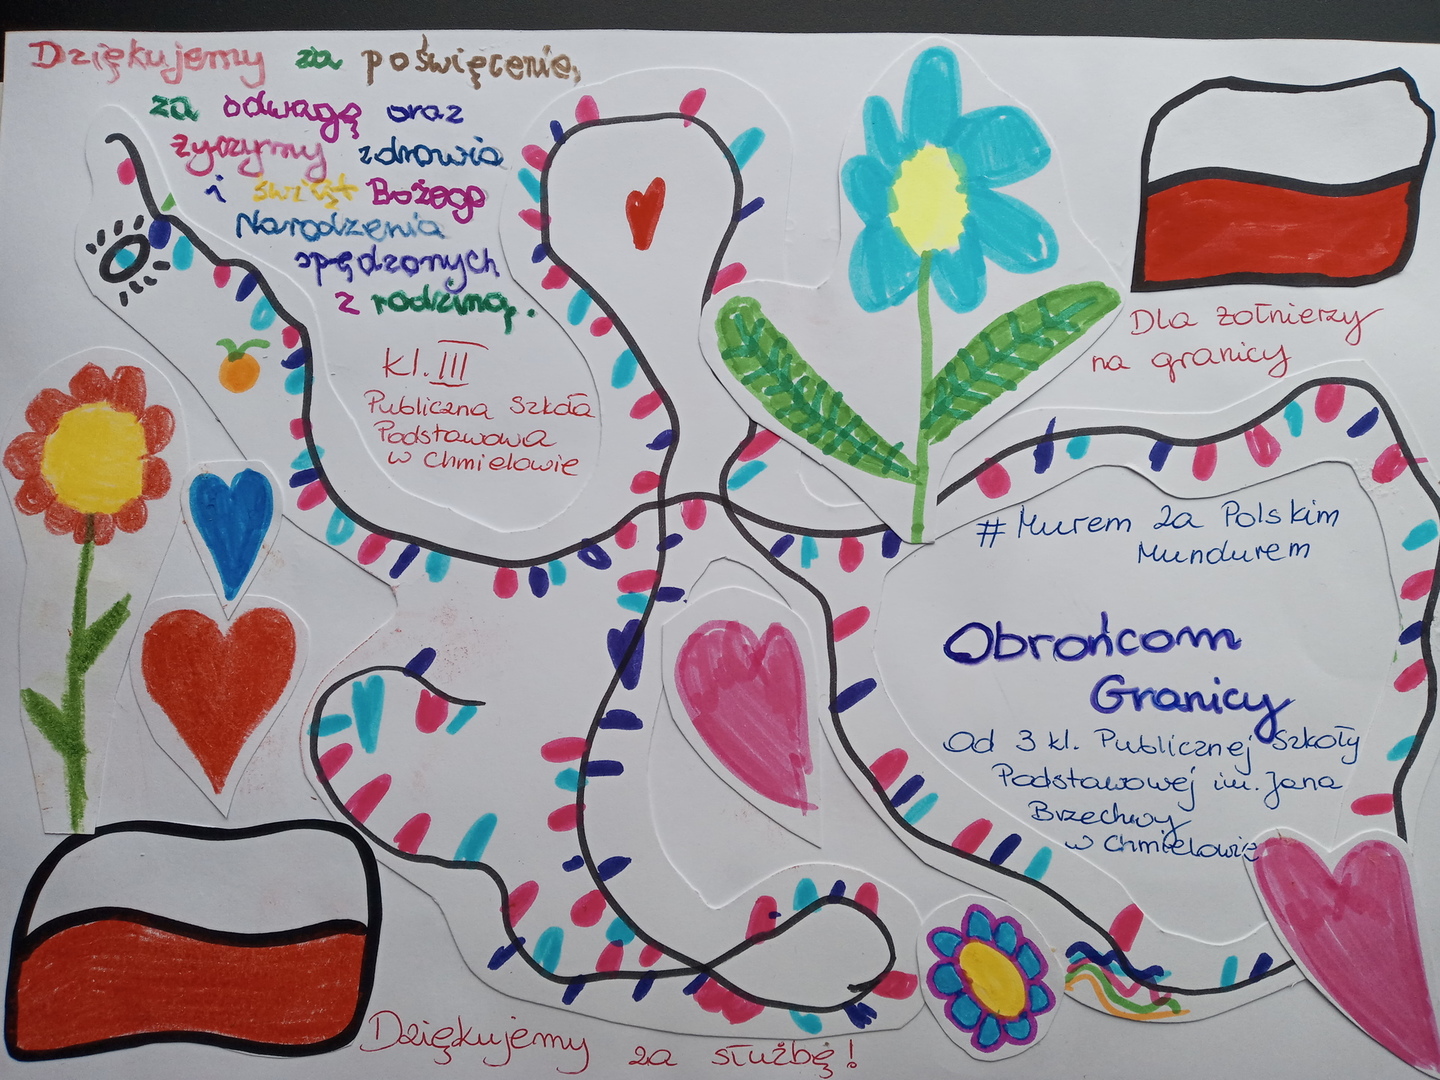 Dziękujemy za poświęcenie,
za odwagę oraz
życzymy zdrowia
i świąt Bożego
Narodzenia
spędzonych
z rodziną.
kl. III
Publiczna Szkoła
Podstawowa
w Chmielowie
Dla żołnierzy
na granicy
# Murem za Polskim
Mundurem
Obrońcom
Granicy
Od 3 kl. Publicznej Szkoły
Podstawowej im. Jana
Brzechwy
w Chmielowie
Dziękujemy za służbę!